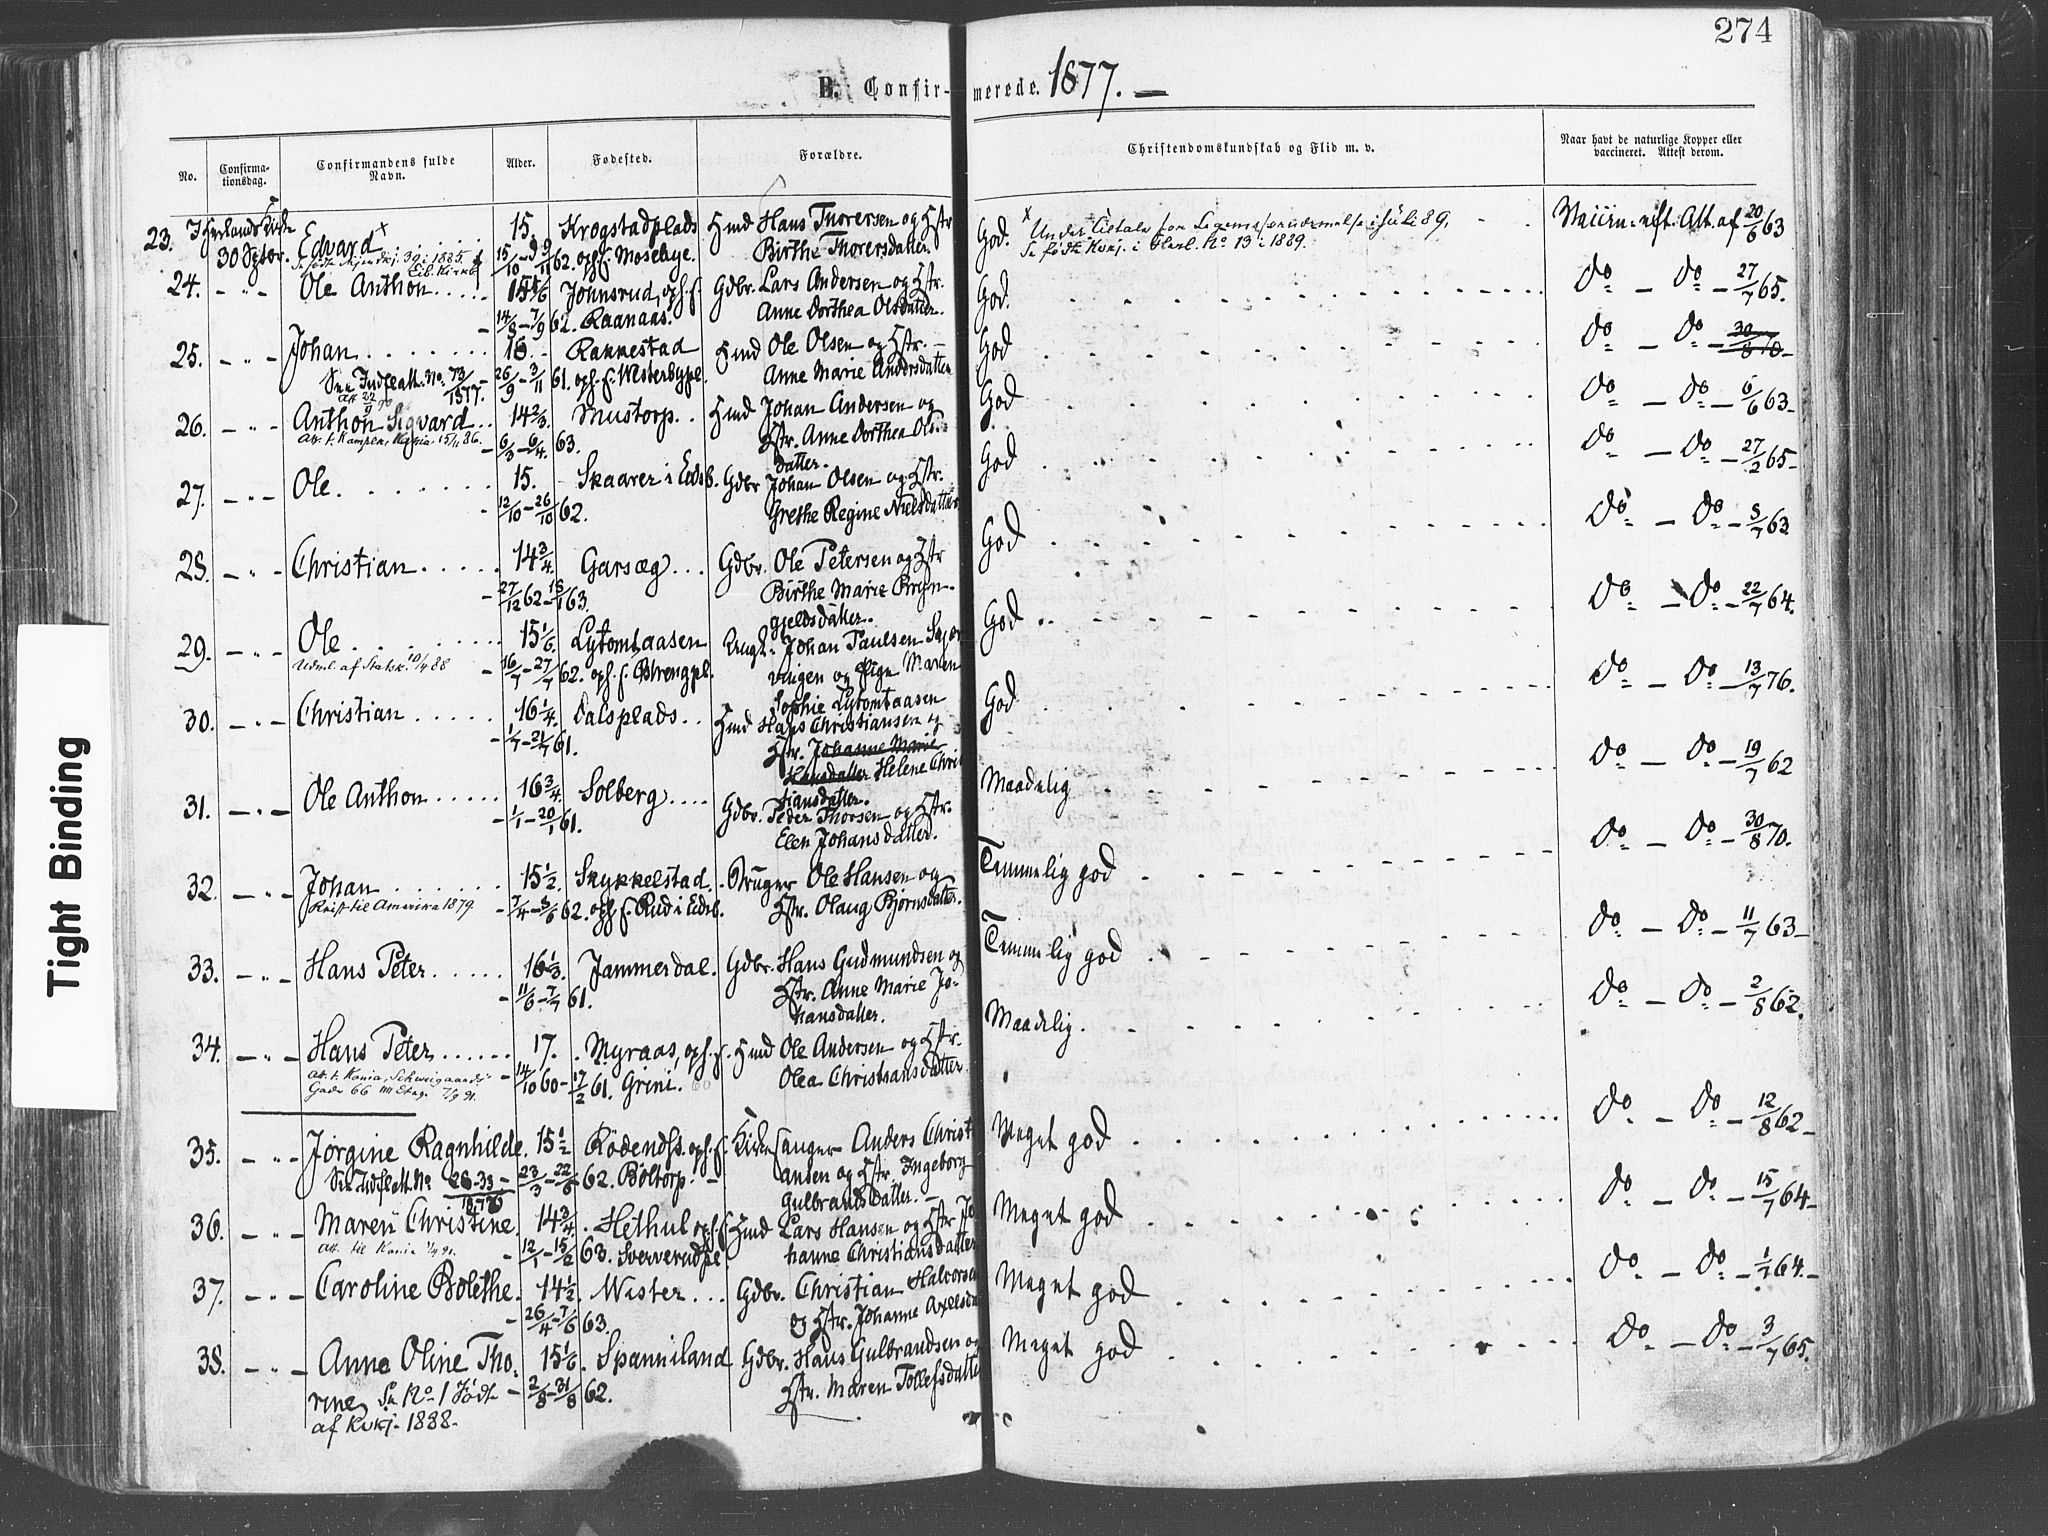 274
B. Confir- merede. 1877. —
No. Confirma-tionsdag. Confirmandens fulde Navn. Alder. Fødested. Forældre. Christendomskundskab og Flid m. v. Naar havt de naturlige Kopper eller vaccineret. Attest derom.
Tight Binding
23. 30 Septbr. Edvard x 15. Krogstadplads Hmd Hans Thorersen og Hstr God. x 20/6 63
15/10 - 9/11 62. oph. f. Mosebye. Birthe Thorersdatter. No 13 i 1889.
24. - " - Ole Anthon Johnsrud, oph. f. Gdbr. Lars Andersen og Hstr. God. Do - Do - 27/7 65.
14/8 - 7/9 62. Raanaas. Anne Dorthea Olsdatter.
25. - " - Johan 16. Rakkestad Hmd Ole Olsen og Hstr. God Do - Do - 30/8 70-
No 73/1877. 26/9 - 3/11 61. oph. f. Wisterbypl. Anne Marie Andersdatter
26. - " - Anthon Sigvard 14 2/3. Mustorp. Hmd Johan Andersen og God Do - Do - 6/6 63-
6/3 - 6/4. 63. Hstr. Anne Dorthea Olsdatter.
27. - " - Ole 15. Skaarer i Eidsb. Gdbr Johan Olsen og Hstr. God Do - Do - 27/2 65-
12/10 - 26/10 62. Grethe Regine Nielsdatter
28. - " - Christian 14 3/4. Garsæg Gdbr. Ole Petersen og Hstr God Do - Do - 5/7 63
27/12 62 - 18/1 63. Birthe Marie Bryngjeldsdatter.
29. - " - Ole 15 1/6. Lytomtaasen Ungk. Johan Paulsen God Do - Do - 22/7 64.
Udml. af Statsk. 10/4 88 16/7 - 27/7 62. oph. f. Strengpl. vingen og Pige Maren Sophie Lytomtaasen
30. - " - Christian 16 1/4. Dalsplads Hmd Hans Christiansen og God Do - Do - 13/7 76.
1/7 - 21/7 61. Hstr. Johanne Marie Hansdatter Helene Christiansdatter.
31. - " - Ole Anthon 16 3/4. Solberg Gdbr. Peder Thorsen og Hstr. Maadelig Do - Do - 19/7 62
1/1 - 20/1 61. Elen Johansdatter.
32. - " - Johan 15 1/2. Skykkelstad Bruger Ole Hansen og Temmelig god Do - Do - 30/8 70.
Reist til Amerika 1879 7/4 - 5/6 62. oph. f. Rud i Eidsb. Hstr. Olaug Bjørnsdatter.
33. - " - Hans Peter 16 1/3. Jammerdal. Gdbr. Hans Gudmundsen og Temmelig god Do - Do - 11/7 63-
11/6 - 7/7 61. Hstr. Anne Marie Johansdatter.
34. - " - Hans Peter 17. Myraas, oph. f. Hmd Ole Andersen og Hstr. Maadelig. Do - Do - 2/8 62.
Att. t. Kania, Schweigaards Gade 66 III Etag. 7/9 91. 14/10 60 - 17/2 61. Grini. Olea Christiansdatter
35. - " - Jørgine Ragnhilde. 15 1/2 Rödenæs. oph. f. Kirkesanger Anders Christ Meget god Do - Do - 12/8 62-
23/3 - 22/6 62. Böltorp. ansen og Hstr. Ingeborg Gulbrandsdatter.
36. - " - Maren Christine 14 3/4. Hethul oph. f. Hmd Lars Hansen og Hstr Jo Meget god Do - Do - 15/7 64-
Att. til Kania 12/1 - 15/2 63. Sververudpl. hanne Christiansdatter
37. - " - Caroline Bolethe. 14 1/2. Wister Gdbr. Christian Halvorsen Meget god Do - Do - 1/7 64.-
26/4 - 7/6 63. og Hstr. Johanne Axelsda
38. - " - Anne Oline Tho. 15 1/6. Spanniland Gdbr. Hans Gulbrandsen og Meget god Do - Do - 3/7 65.
rine, Se No 1 Födt 2/8 - 31/8 62. Hstr. Maren Tollefsdatte
af Kvkj. 1888.